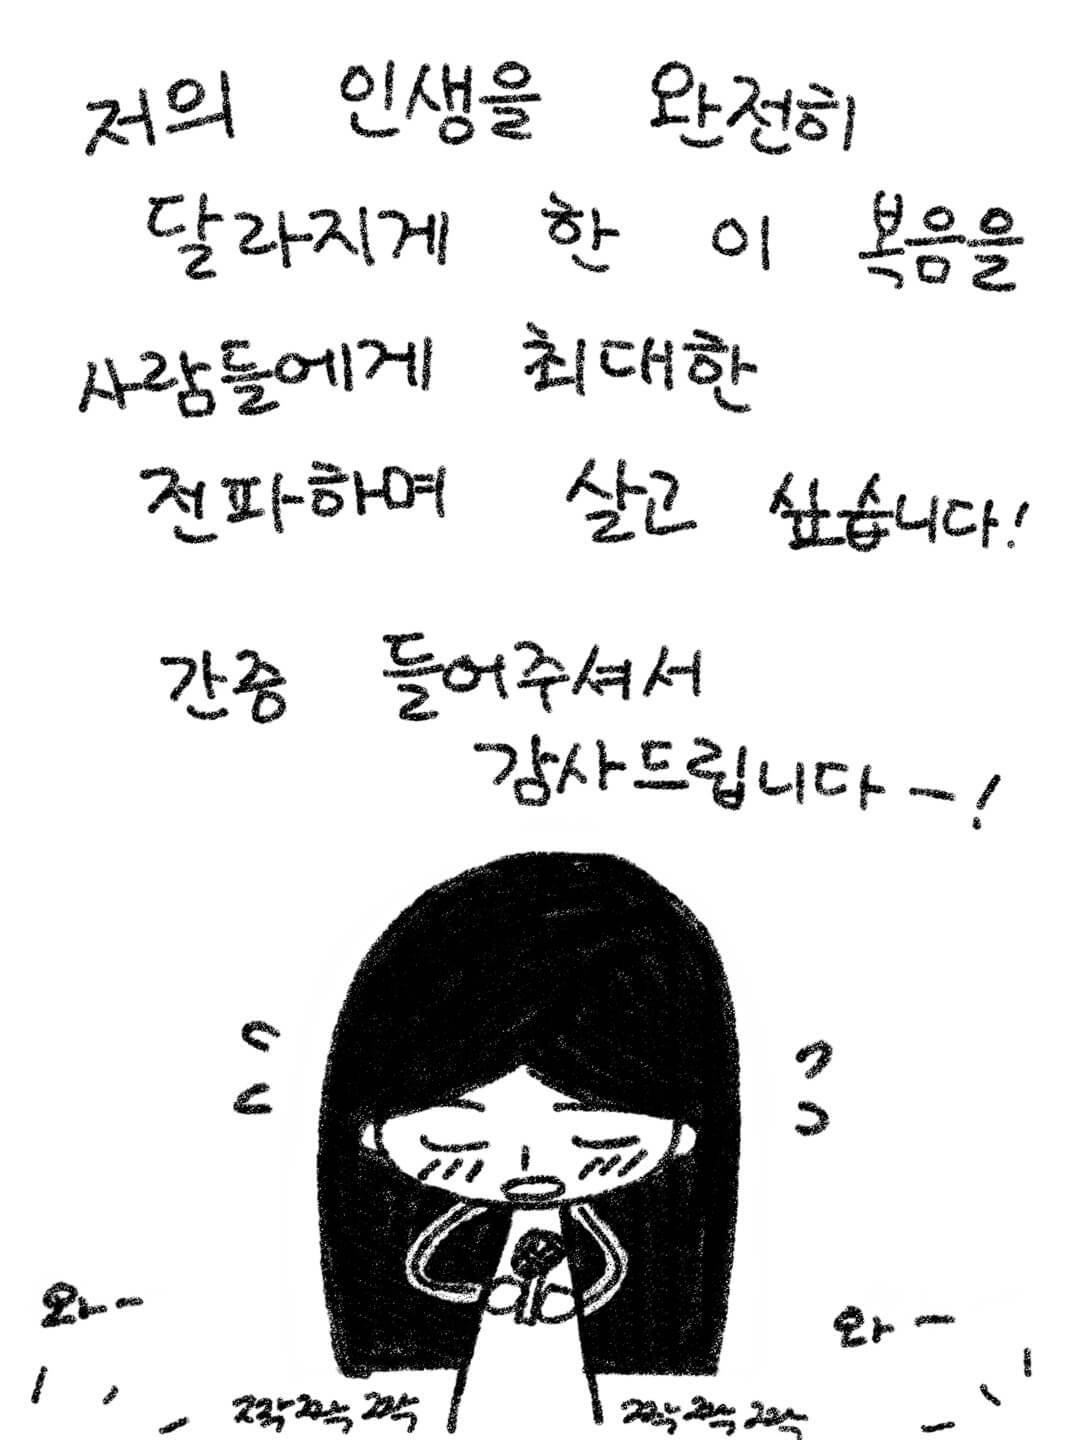 저의 인생을 완전히
달라지게 한 이 복음을
사람들에게 최대한
전파하며 살고 싶습니다!
간증 들어주셔서
감사드립니다-!
와-
와-
짝짝짝
짝짝짝